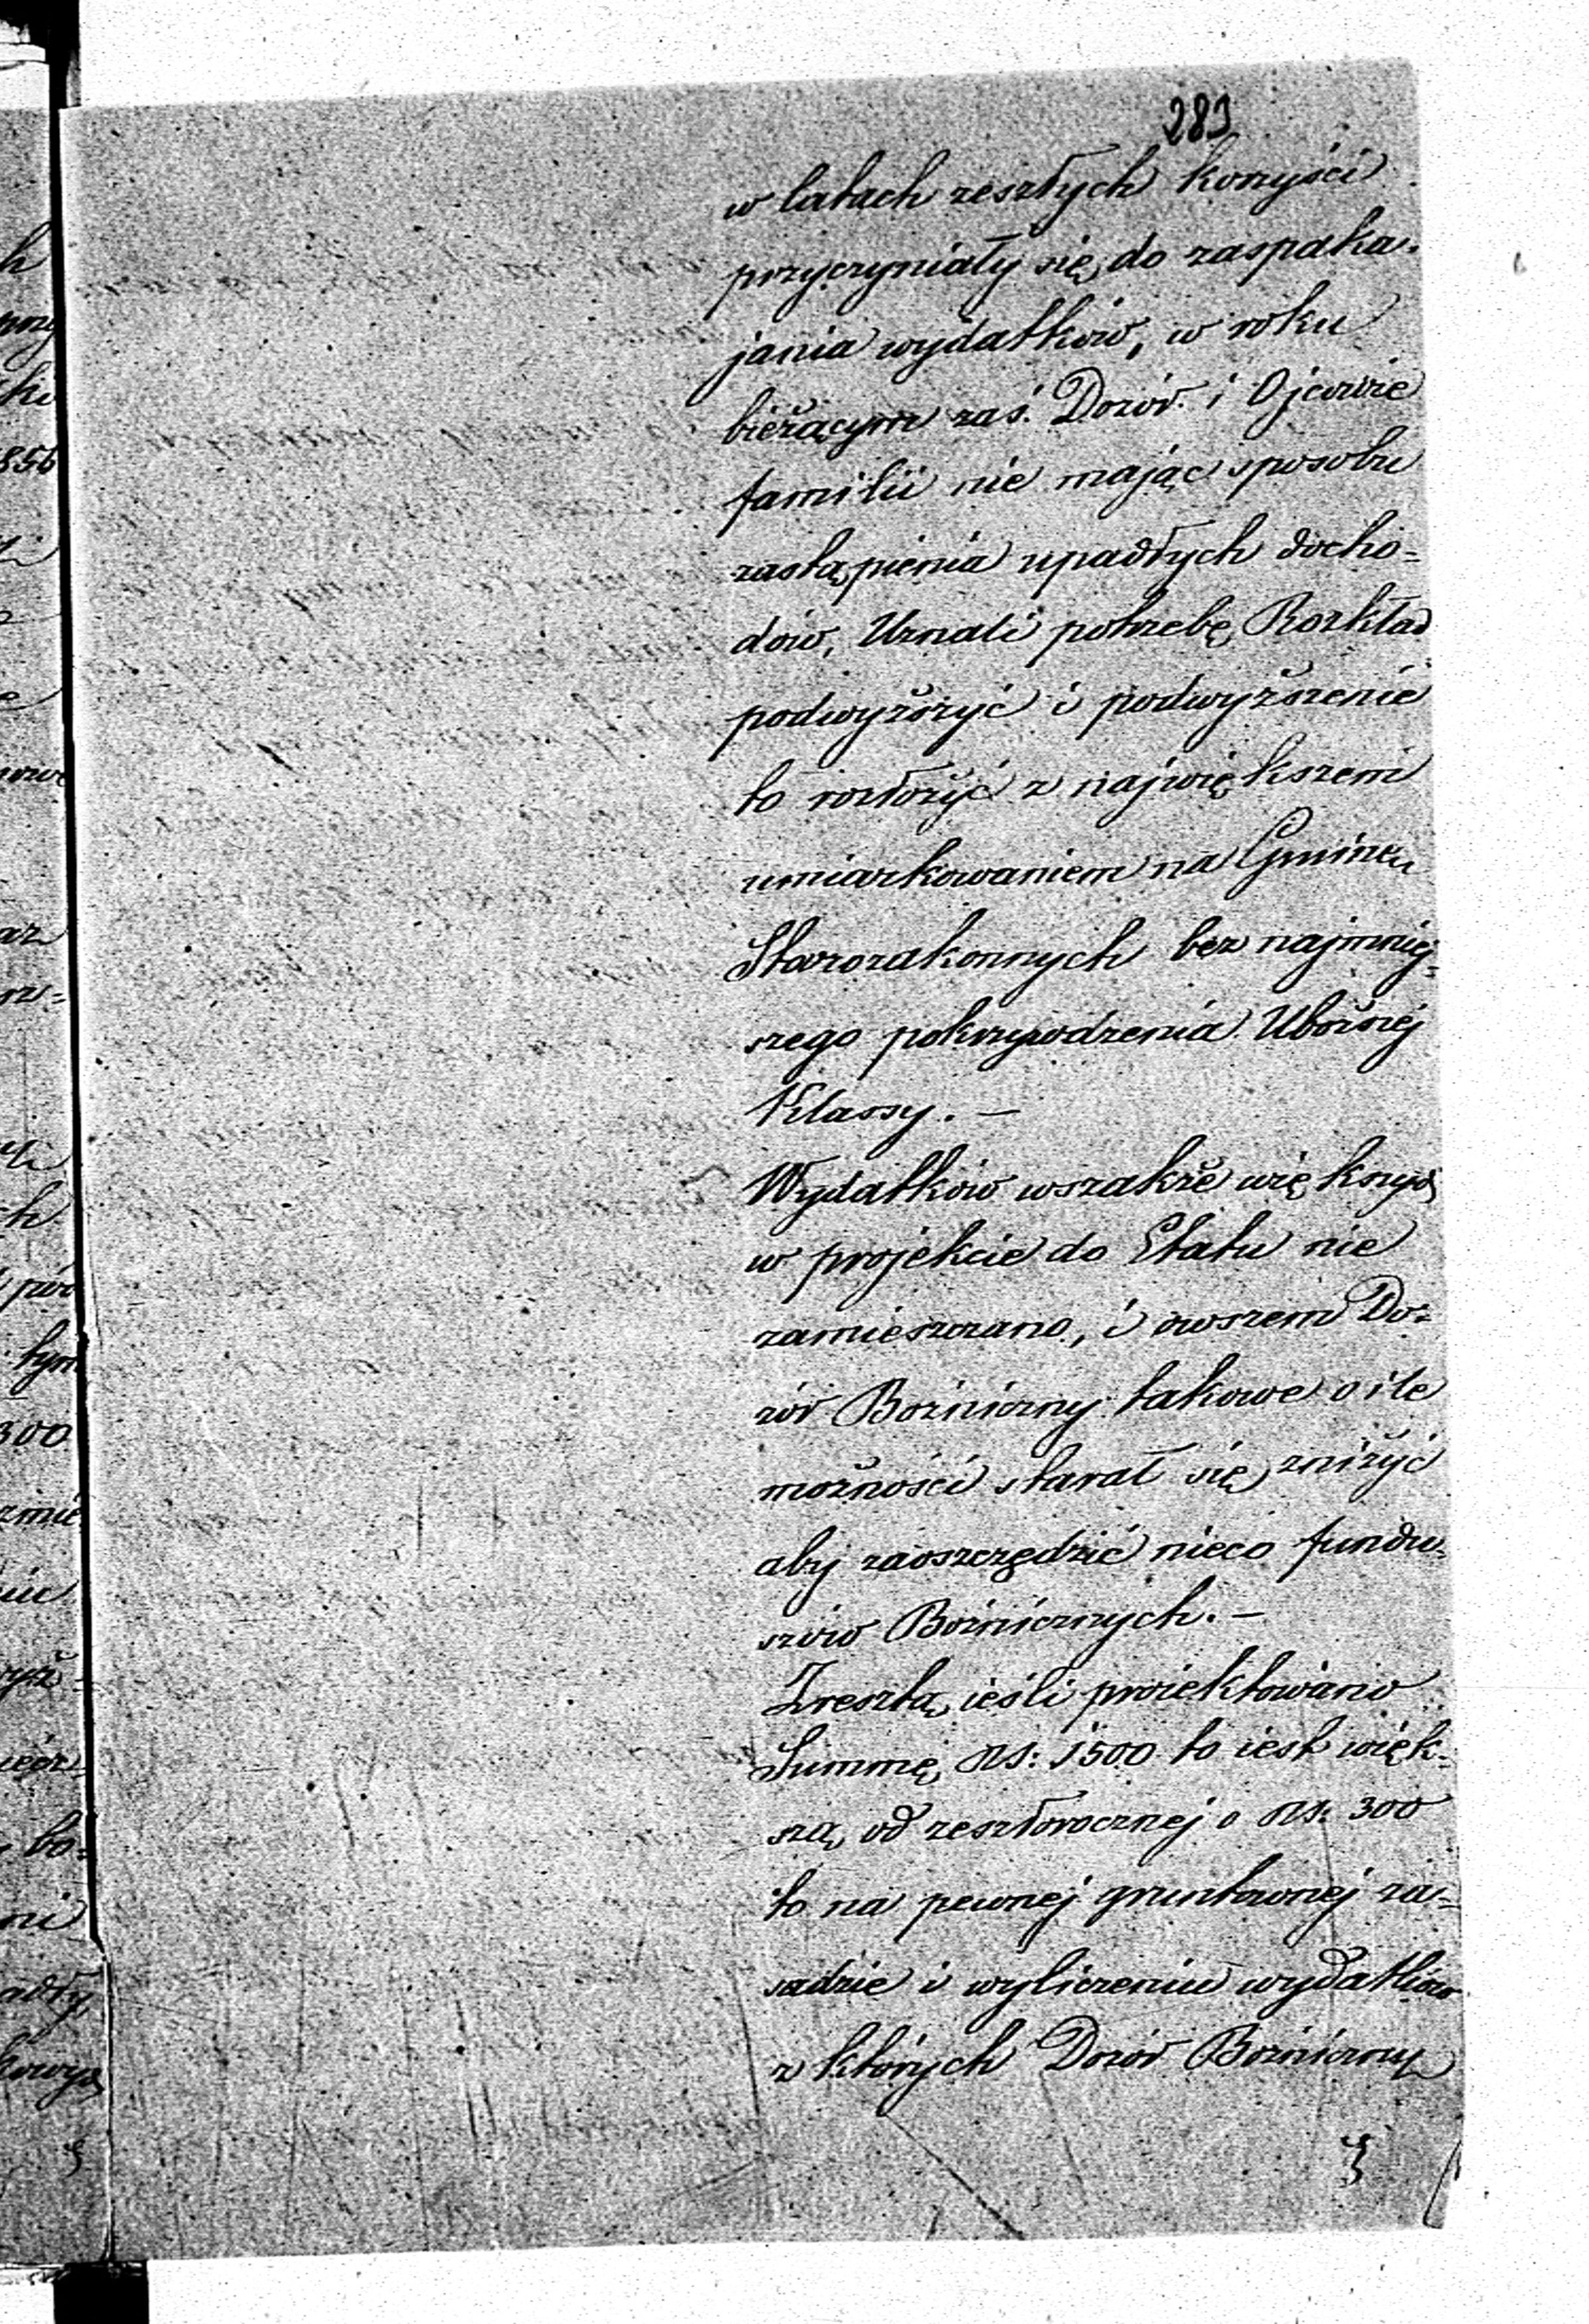 283
w latach zeszłych korzyści
przyczyniały się do zaspaka-
jania wydatków, w roku
bieżącym zaś. Dozór i Ojcowie
familii nie mając sposobu
zastąpienia upadłych docho=
dów, Uznali potrzebę Rozkład
podwyższyć i podwyższenie
to rozłożyć z największem
umiarkowaniem na Gminę
Starozakonnych bez najmniej=
szego pokrzywdzenia Uboższej
Klassy. —
Wydatków wszakże większych
w projekcie do Etatu nie
zamieszczano, i owszem Do=
zór Bożniczny takowe o ile
możności starał się zniżyć
aby zaoszczędzić nieco fundu-
szów Bożnicznych. —
Zresztą ieśli proiektowano
Summę Rs: 1500 to iest więk-
szą od zeszłorocznej o Rs: 300
to na pewnej gruntownej za-
sadzie i wyliczeniu wydatków
z których Dozór Bożniczny